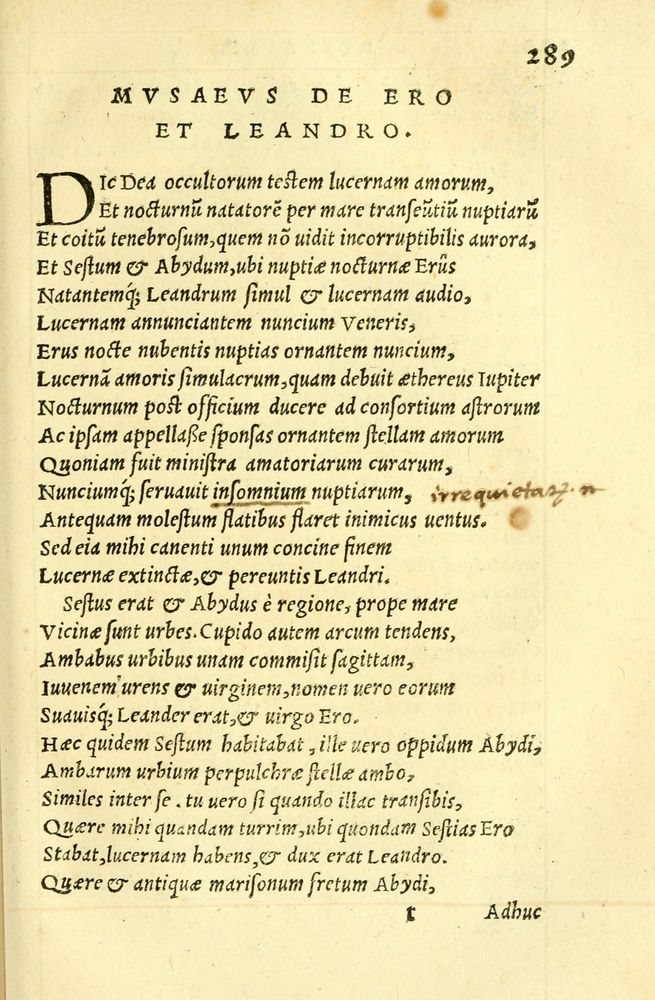 289
MVSAEVS DE ERO
ET LEANDRO.
DIc Dea occultorum testem lucernam amorum,
Et nocturnũ natatorẽ per mare transeũtiũ nuptiarũ
Et coitũ tenebrosum, quem nõ uidit incorruptibilis aurora,
Et Sestum & Abydum, ubi nuptiæ nocturnæ Erûs
Natantemq́; Leandrum simul & lucernam audio,
Lucernam annunciantem nuncium Veneris,
Erus nocte nubentis nuptias ornantem nuncium,
Lucernã amoris simulacrum, quam debuit æthereus Iupiter
Nocturnum post officium ducere ad consortium astrorum
Ac ipsam appellaße sponsas ornantem stellam amorum
Quoniam fuit ministra amatoriarum curarum,
Nunciumq́; seruauit insomnium nuptiarum, irrequietaꝝ
Antequam molestum flatibus flaret inimicus uentus.
Sed eia mihi canenti unum concine finem
Lucernæ extinctæ, & pereuntis Leandri.
Sestus erat & Abydus è regione, prope mare
Vicinæ sunt urbes. Cupido autem arcum tendens,
Ambabus urbibus unam commisit sagittam,
Iuuenem urens & uirginem, nomen uero eorum
Suauisq́; Leander erat, & uirgo Ero.
Hæc quidem Sestum habitabat, ille uero oppidum Abydi,
Ambarum urbium perpulchræ stellæ ambo,
Similes inter se. tu uero si quando illac transibis,
Quære mihi quandam turrim, ubi quondam Sestias Ero
Stabat, lucernam habens, & dux erat Leandro.
Quære & antiquæ marisonum fretum Abydi,
t Adhuc